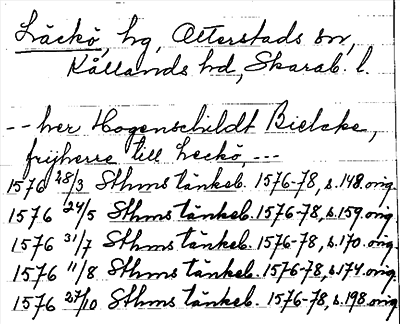 Läckö, hg, Otterstads sn,
Kållands hd, Skarab. l.
-- her Hogenschildt Bielcke,
frijherre till Leckö, ---
1576 28/3 Sthms tänkeb. 1576-78, s. 148. orig.
1576 24/5 Sthms tänkeb. 1576-78, s. 159. orig.
1576 31/7 Sthms tänkeb. 1576-78, s. 170. orig.
1576 11/8 Sthms tänkeb. 1576-78, s. 174. orig.
1576 27/10 Sthms tänkeb. 1576-78, s. 198. orig.